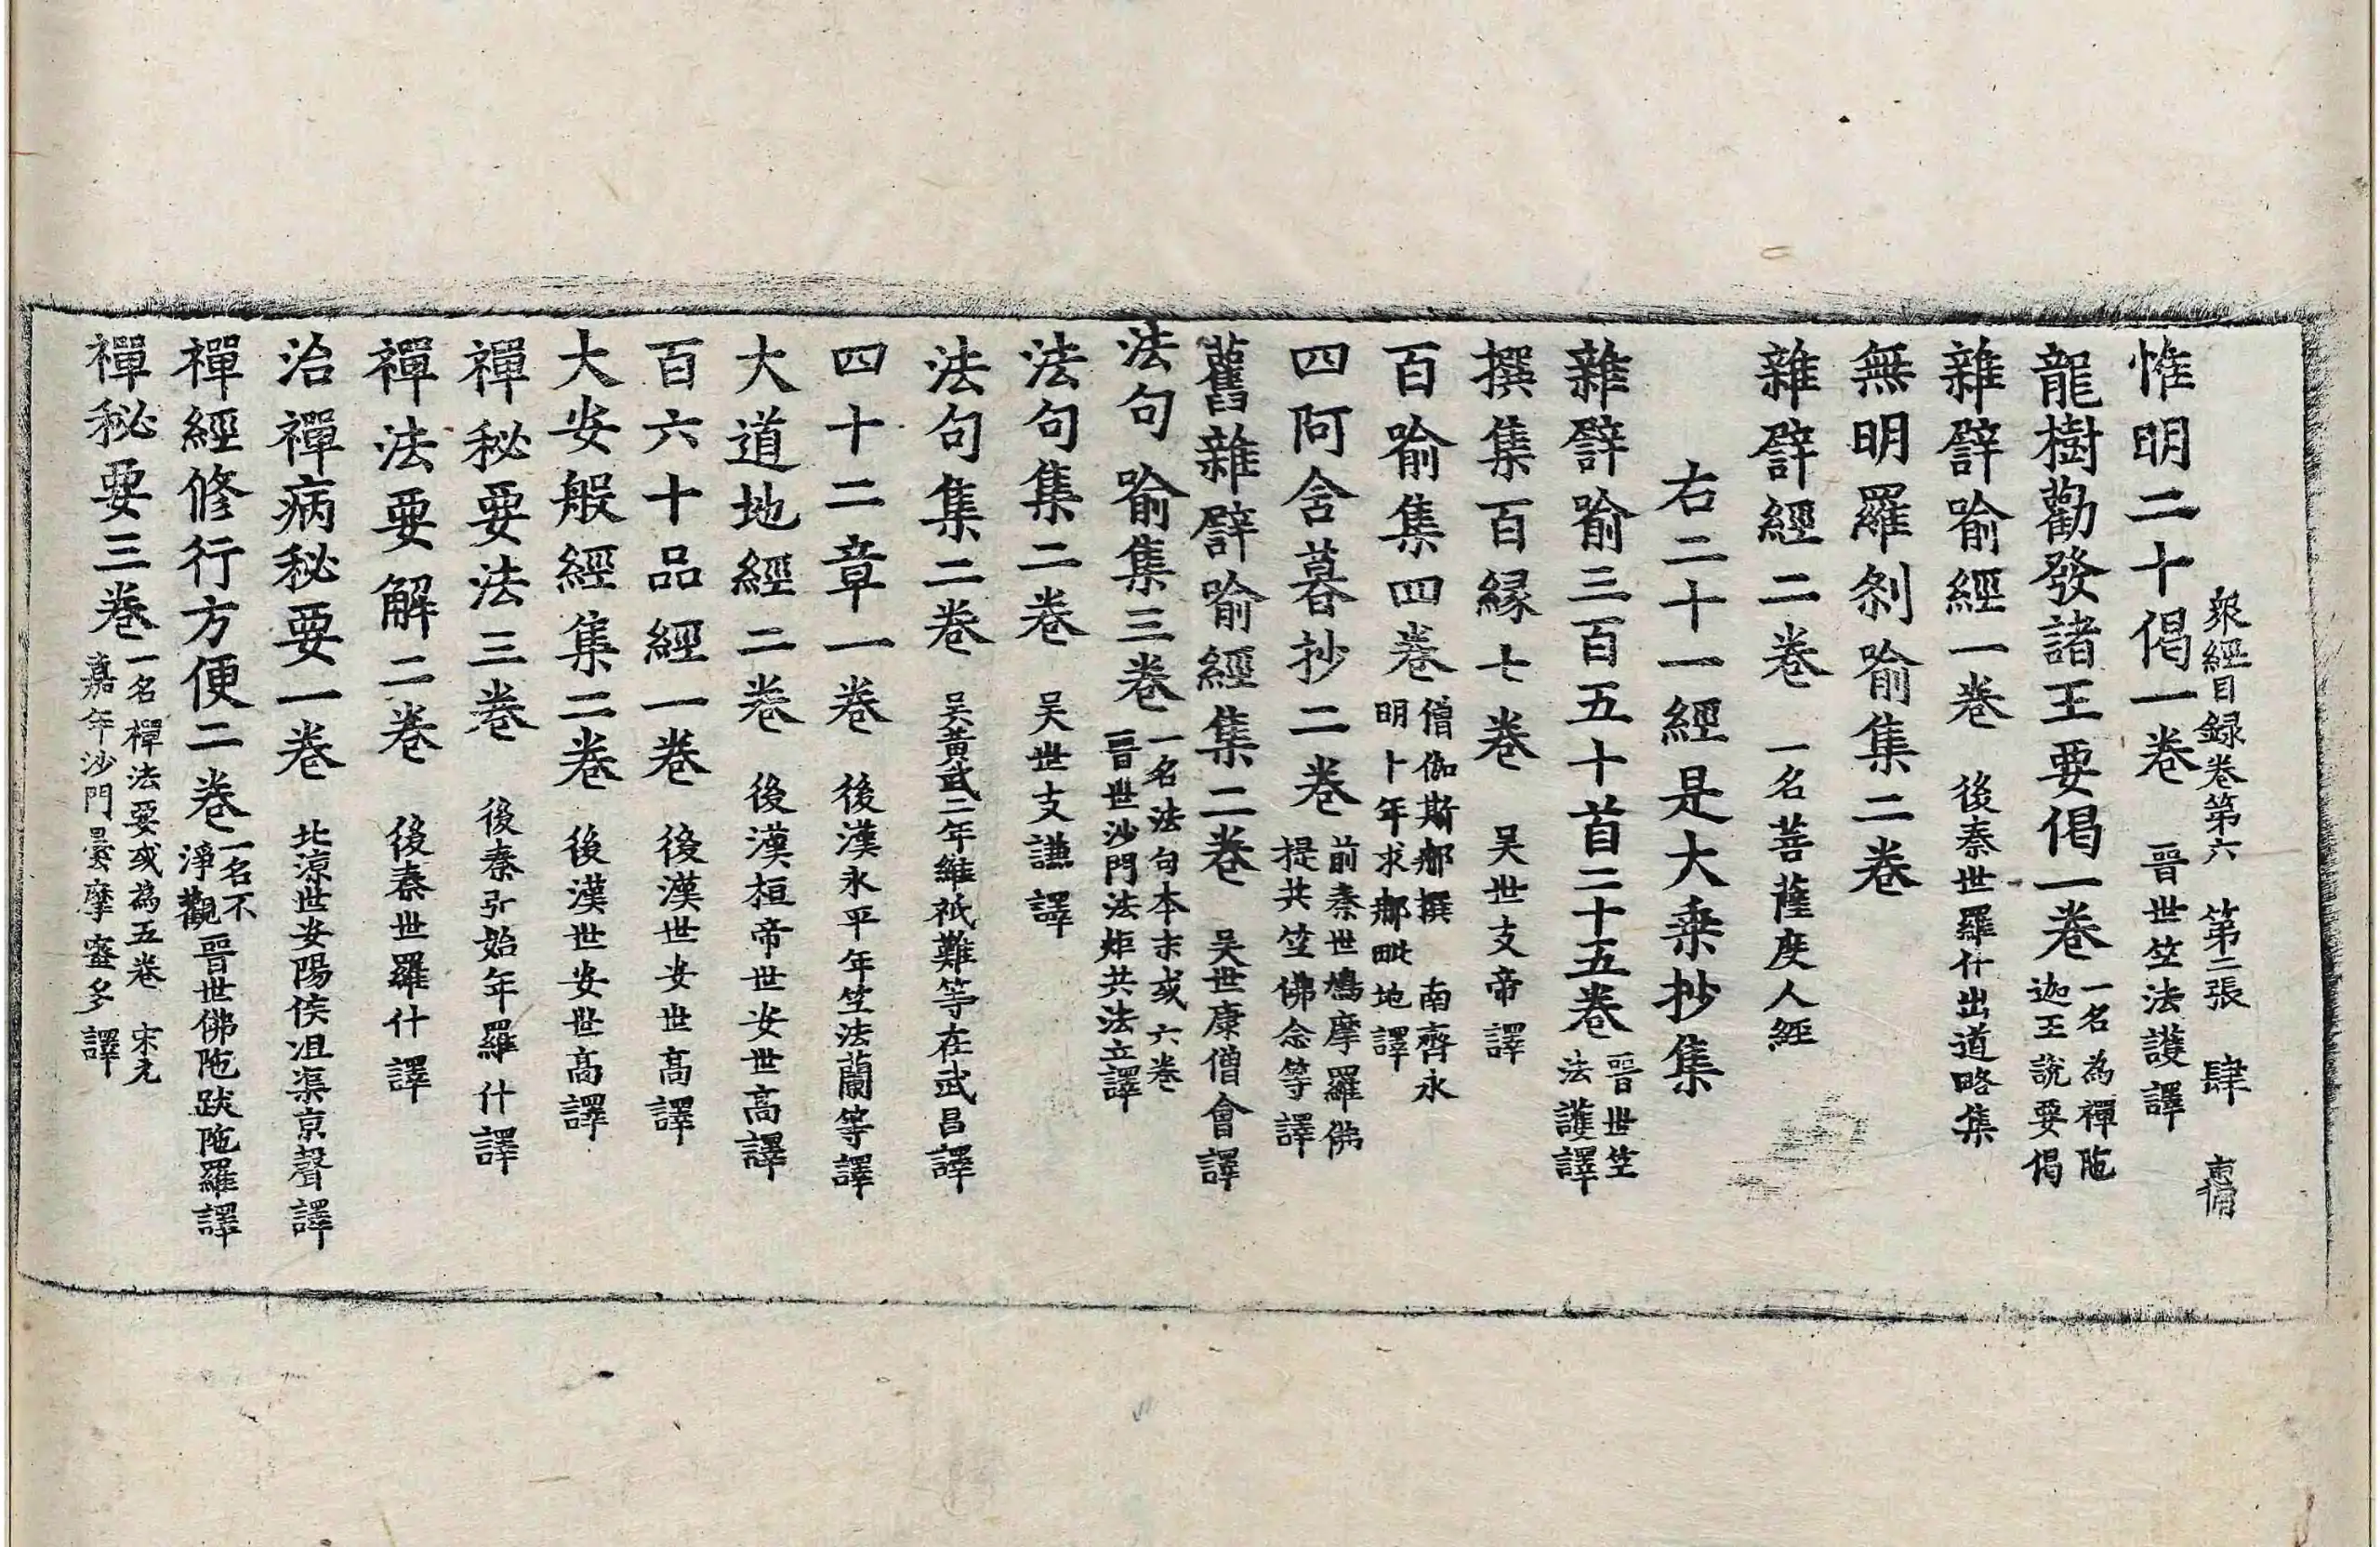 衆經目録卷第六　第二張　肆
惟明二十偈一卷　晉世竺法護譯
龍樹勸發諸王要偈一卷　一名為禪陁迦王說要偈
雜譬喻經一卷　後秦世羅什出道略集
無明羅刹喻集二卷
雜譬經二卷　一名菩薩度人經
右二十一經是大乗抄集
雜譬喻三百五十首二十五卷　晉世竺法護譯
撰集百縁七卷　吴世支帝譯
百喻集四卷　僧伽斯郍撰　南齊永明卜年求郍毗地譯
四阿含暮抄二卷　前秦世鳩摩羅佛提共竺佛念等譯
舊雜譬喻經集二卷　吴世康僧會譯
法句喻集三卷　一名法句本末或六卷晉世沙門法炬共法立譯
法句集二卷　吴世支謙譯
法句集二卷　吴黄武三年維祇難等在武昌譯
四十二章一卷　後漢永平年竺法蘭等譯
大道地經二卷　後漢桓帝世安世高譯
百六十品經一卷　後漢世安世高譯
大安般經集二卷　後漢世安世高譯
禪秘要法三卷　後秦弘始年羅什譯
禪法要解二卷　後秦世羅什譯
治禪病秘要一卷　北涼世安陽侯沮渠京聲譯
禪經修行方便二卷　一名不淨觀晉世佛陁跋陁羅譯
禪秘要三卷　一名禪法要或為五卷　宋元嘉年沙門曇摩蜜多譯